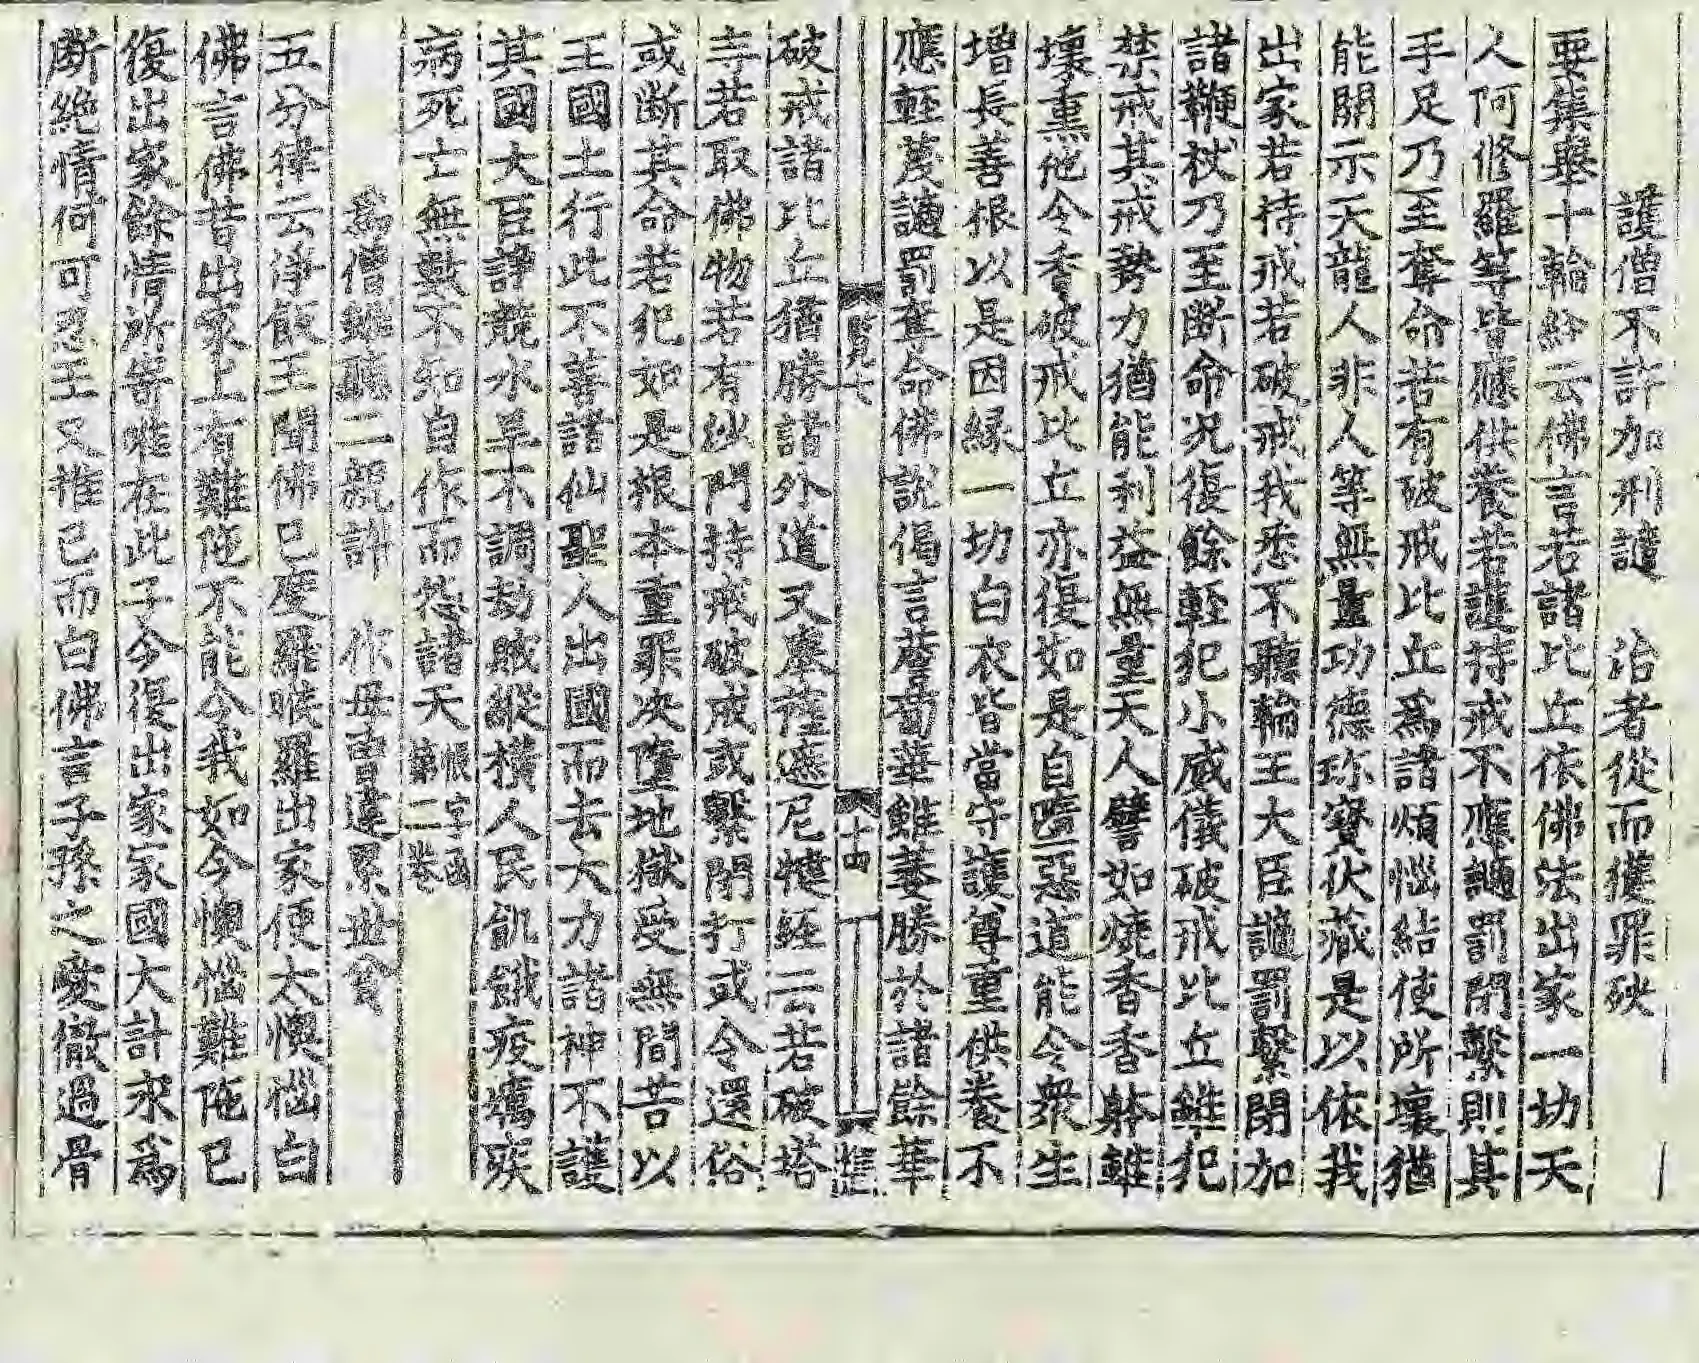 護僧不許加刑譴　治者從而獲罪殃
要集舉十輪經云佛言若諸比丘依佛法出家一切天
人阿修羅等皆應供養若護持戒不應譴罰閉繫則其
手足乃至奪命若有破戒比丘爲諸煩惱結使所壞猶
能開示天龍人非人等無量功德珎寶伏藏是以依我
出家若持戒若破戒我悉不聽輪王大臣譴罰繫閉加
諸鞭杖乃至斷命况復餘輕犯小威儀破戒比丘雖犯
禁戒其戒勢力猶能利益無量天人譬如燒香香體雖
壞熏他令香破戒比丘亦復如是自墮惡道能令衆生
增長善根以是因緣一切白衣皆當守護尊重供養不
應輕蔑譴罰奪命佛說偈言薝蔔華雖萎勝於諸餘華
覧七　十四
破戒諸比丘猶勝諸外道又摩薩遮尼犍經云若破塔
寺若取佛物若有沙門持戒破戒或繫閉打或令還俗
或斷其命若犯如是根本重罪决墮地獄受無間苦以
王國土行此不善諸仙聖人出國而去大力諸神不護
其國大臣諍競水旱不調劫賊縱橫人民飢餓疫癘疾
病死亡無數不知自作而怨諸天
爲僧雖聽二親許　作母曾違累世貧
五分律云淨飯王聞佛已度羅睺羅出家便大懊惱白
佛言佛昔出家上有難陁不能令我如今懊惱難陁已
復出家餘情所寄唯在此子今復出家家國大計永爲
斷絶情何可忍王又推己而白佛言子孫之愛徹過骨